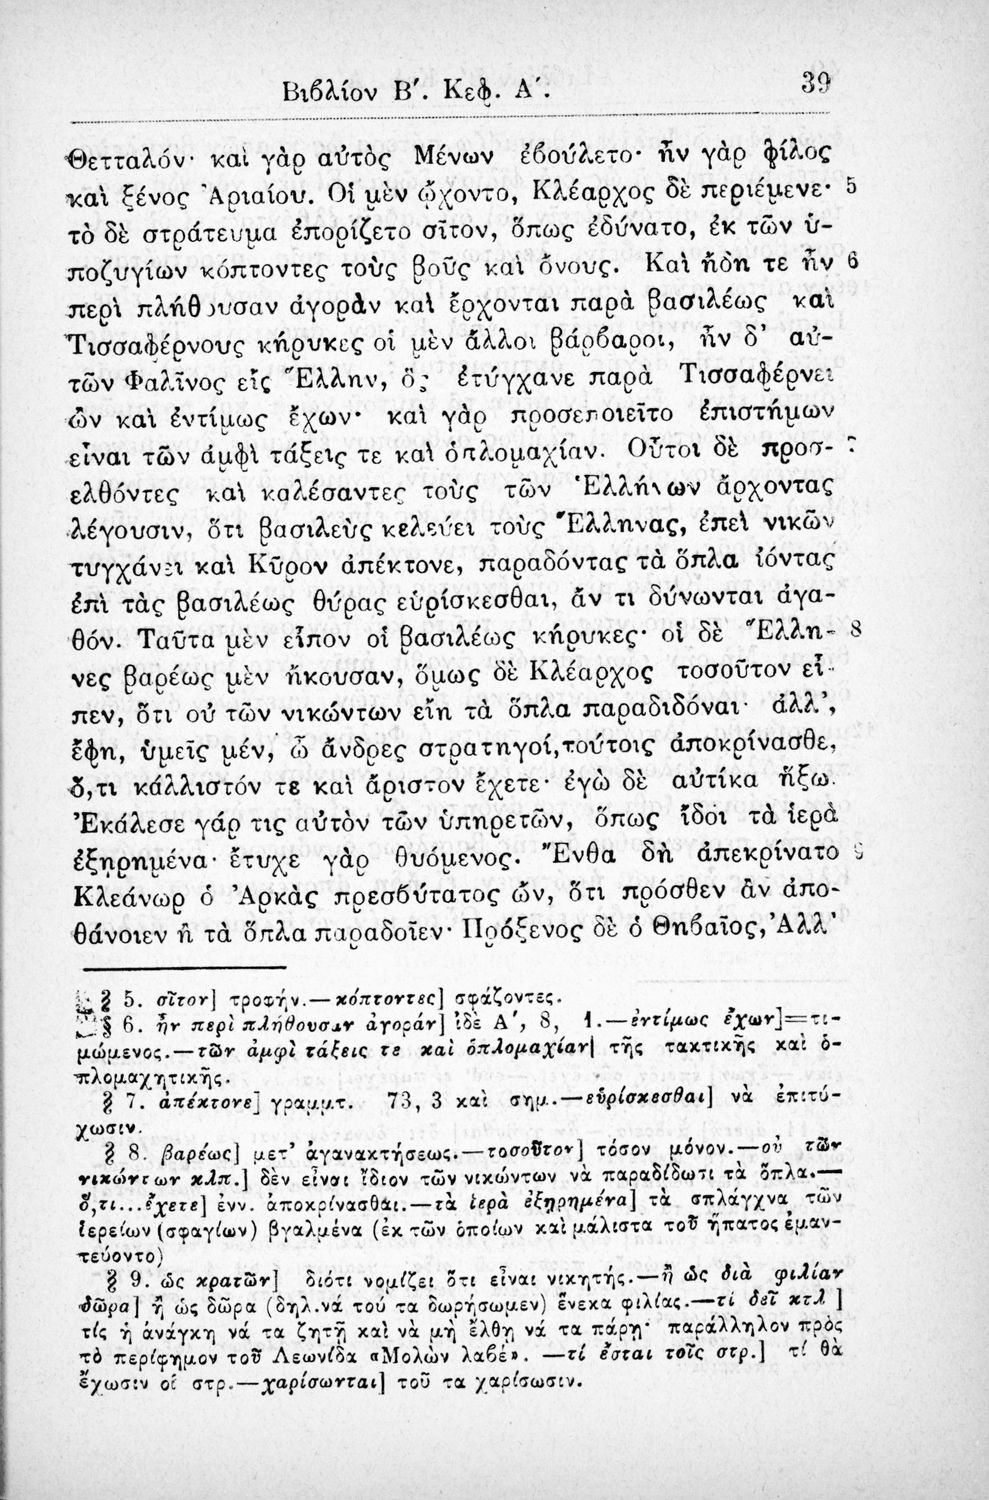 Βιβλίον Β΄. Κεφ. Α΄.
39
Θετταλόν· καὶ γὰρ αὐτὸς Μένων ἐβούλετο· ἦν γὰρ φίλος
καὶ ξένος Ἀριαίου. Οἱ μὲν ᾤχοντο, Κλέαρχος δὲ περιέμενε· 5
τὸ δὲ στράτευμα ἐπορίζετο σῖτον, ὅπως ἐδύνατο, ἐκ τῶν ὑ-
ποζυγίων κόπτοντες τοὺς βοῦς καὶ ὄνους. Καὶ ἤδη τε ἦν 6
περὶ πλήθουσαν ἀγορὰν καὶ ἔρχονται παρὰ βασιλέως καὶ
Τισσαφέρνους κήρυκες οἱ μὲν ἄλλοι βάρβαροι, ἦν δ' αὐ-
τῶν Φαλῖνος εἷς Ἕλλην, ὃς ἐτύγχανε παρὰ Τισσαφέρνει
ὢν καὶ ἐντίμως ἔχων· καὶ γὰρ προσεποιεῖτο ἐπιστήμων
εἶναι τῶν ἀμφὶ τάξεις τε καὶ ὁπλομαχίαν. Οὗτοι δὲ προσ- 7
ελθόντες καὶ καλέσαντες τοὺς τῶν Ἑλλήνων ἄρχοντας
λέγουσιν, ὅτι βασιλεὺς κελεύει τοὺς Ἕλληνας, ἐπεὶ νικῶν
τυγχάνει καὶ Κῦρον ἀπέκτονε, παραδόντας τὰ ὅπλα ἰόντας
ἐπὶ τὰς βασιλέως θύρας εὑρίσκεσθαι, ἄν τι δύνωνται ἀγα-
θόν. Ταῦτα μὲν εἶπον οἱ βασιλέως κήρυκες· οἱ δὲ Ἕλλη- 8
νες βαρέως μὲν ἤκουσαν, ὅμως δὲ Κλέαρχος τοσοῦτον εἶ-
πεν, ὅτι οὐ τῶν νικώντων εἴη τὰ ὅπλα παραδιδόναι· ἀλλ',
ἔφη, ὑμεῖς μέν, ὦ ἄνδρες στρατηγοί, τούτοις ἀποκρίνασθε,
ὅ,τι κάλλιστόν τε καὶ ἄριστον ἔχετε· ἐγὼ δὲ αὐτίκα ἥξω.
Ἐκάλεσε γάρ τις αὐτὸν τῶν ὑπηρετῶν, ὅπως ἴδοι τὰ ἱερὰ
ἐξῃρημένα· ἔτυχε γὰρ θυόμενος. Ἔνθα δὴ ἀπεκρίνατο 9
Κλεάνωρ ὁ Ἀρκὰς πρεσβύτατος ὤν, ὅτι πρόσθεν ἂν ἀπο-
θάνοιεν ἢ τὰ ὅπλα παραδοῖεν· Πρόξενος δὲ ὁ Θηβαῖος, Ἀλλ'
§ 5. σῖτον] τροφήν.—κόπτοντες] σφάζοντες.
§ 6. ἦν περὶ πλήθουσαν ἀγοράν] ἰδὲ Α', 8, 1.—ἐντίμως ἔχων]=τι-
μώμενος.—τῶν ἀμφὶ τάξεις τε καὶ ὁπλομαχίαν] τῆς τακτικῆς καὶ ὁ-
πλομαχητικῆς.
§ 7. ἀπέκτονε] γραμμτ. 73, 3 καὶ σημ.—εὑρίσκεσθαι] νὰ ἐπιτύ-
χωσιν.
§ 8. βαρέως] μετ' ἀγανακτήσεως.—τοσοῦτον] τόσον μόνον.—οὐ τῶν
νικώντων κλπ.] δὲν εἶναι ἴδιον τῶν νικώντων νὰ παραδίδωσι τὰ ὅπλα.—
ὅ,τι...ἔχετε] ἐνν. ἀποκρίνασθαι.—τὰ ἱερὰ ἐξῃρημένα] τὰ σπλάγχνα τῶν
ἱερείων (σφαγίων) βγαλμένα (ἐκ τῶν ὁποίων καὶ μάλιστα τοῦ ἥπατος ἐμαν-
τεύοντο)
§ 9. ὡς κρατῶν] διότι νομίζει ὅτι εἶναι νικητής.—ἢ ὡς διὰ φιλίαν
δῶρα] ἢ ὡς δῶρα (δηλ. νά τοὺ τα δωρήσωμεν) ἕνεκα φιλίας.—τί δεῖ κτλ]
τίς ἡ ἀνάγκη νά τα ζητῇ καὶ νὰ μὴ ἔλθῃ νά τα πάρῃ· παράλληλον πρὸς
τὸ περίφημον τοῦ Λεωνίδα «Μολὼν λαβέ». —τί ἔσται τοῖς στρ.] τί θὰ
ἔχωσιν οἱ στρ.—χαρίσωνται] τοῦ τα χαρίσωσιν.